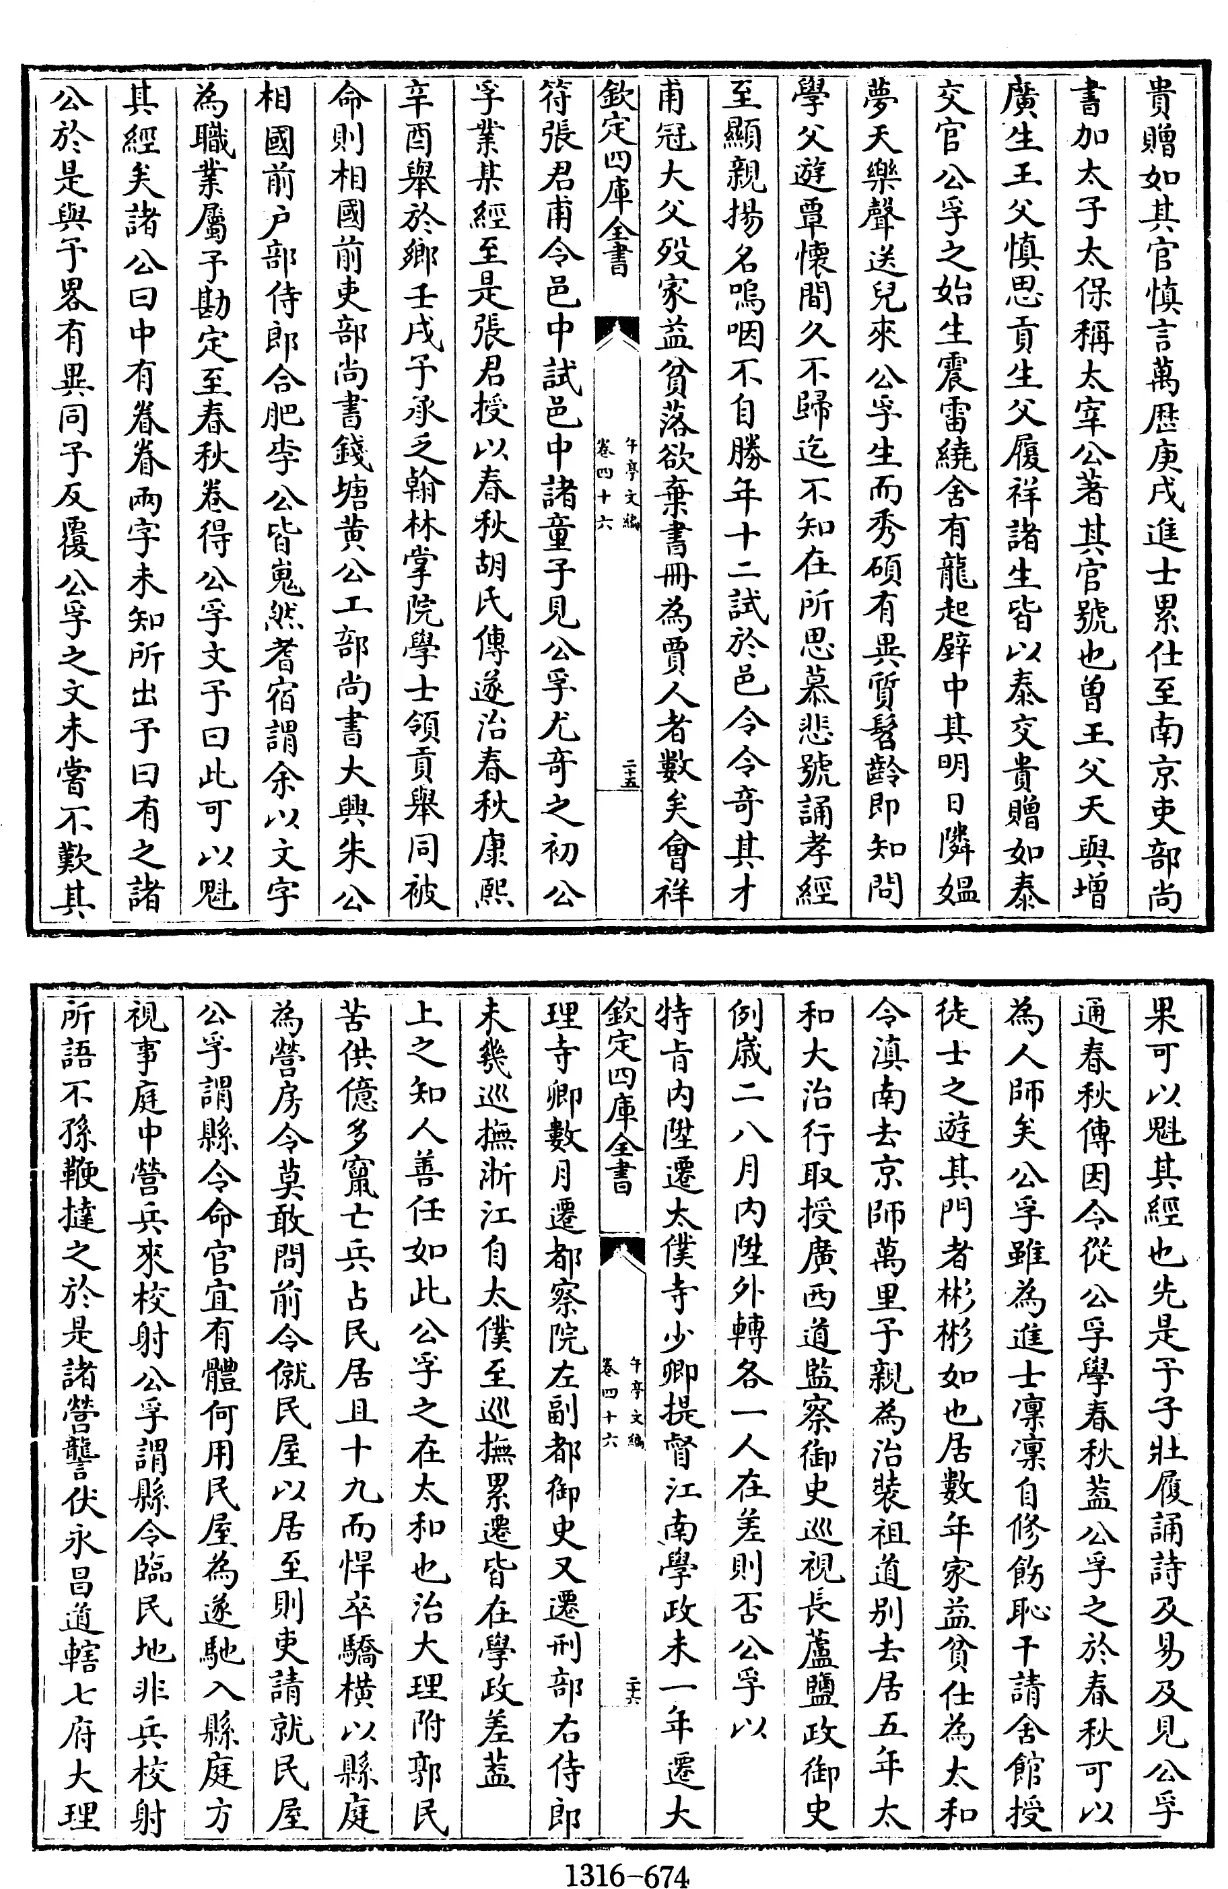 貴贈如其官慎言萬歴庚戌進士累仕至南京吏部尚
書加太子太保稱太宰公著其官號也曽王父天與增
廣生王父慎思貢生父履祥諸生皆以泰交貴贈如泰
交官公孚之始生震雷繞舍有龍起辟中其明日隣媼
夢天樂聲送兒來公孚生而秀碩有異質髫齡即知問
學父遊覃懷間久不歸迄不知在所思慕悲號誦孝經
至顯親揚名嗚咽不自勝年十二試於邑令令奇其才
甫冠大父殁家益貧落欲棄書冊為賈人者數矣會祥
欽定四庫全書
午亭文編
卷四十六
二十五
符張君甫令邑中試邑中諸童子見公孚尤奇之初公
孚業某經至是張君授以春秋胡氏傳遂治春秋康熙
辛酉舉於鄉壬戌予承乏翰林掌院學士領貢舉同被
命則相國前吏部尚書錢塘黄公工部尚書大興朱公
相國前户部侍郎合肥李公皆嵬然耆宿謂余以文字
為職業屬予勘定至春秋卷得公孚文予曰此可以魁
其經矣諸公曰中有眷眷兩字未知所出予曰有之諸
公於是與予畧有異同予反覆公孚之文未嘗不歎其
果可以魁其經也先是予子壯履誦詩及易及見公孚
通春秋傳因令從公孚學春秋蓋公孚之於春秋可以
為人師矣公孚雖為進士凜凜自修飭恥干請舍館授
徒士之遊其門者彬彬如也居數年家益貧仕為太和
令滇南去京師萬里予親為治裝祖道别去居五年太
和大治行取授廣西道監察御史巡視長蘆鹽政御史
例歲二八月内陞外轉各一人在差則否公孚以
特旨内陞遷太僕寺少卿提督江南學政未一年遷大
欽定四庫全書
午亭文編
卷四十六
二十六
理寺卿數月遷都察院左副都御史又遷刑部右侍郎
未幾巡撫浙江自太僕至巡撫累遷皆在學政差蓋
上之知人善任如此公孚之在太和也治大理附郭民
苦供億多竄亡兵占民居且十九而悍卒驕横以縣庭
為營房令莫敢問前令僦民屋以居至則吏請就民屋
公孚謂縣令命官宜有體何用民屋為遂馳入縣庭方
視事庭中營兵來校射公孚謂縣令臨民地非兵校射
所語不孫鞭撻之於是諸營讋伏永昌道轄七府大理
1316-674